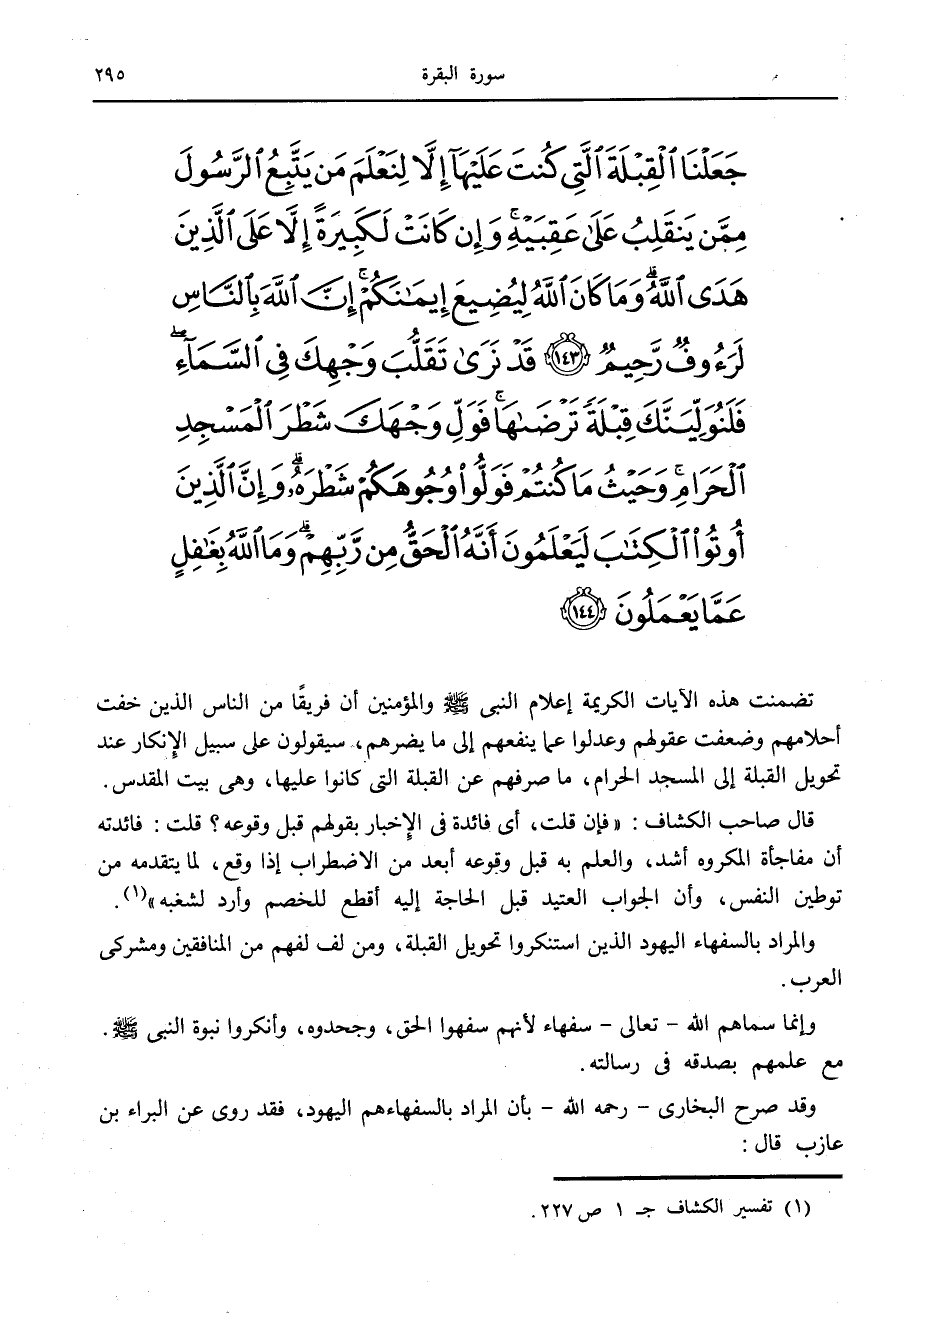 سورة البقرة ٢٩٥
جَعَلْنَا ٱلْقِبْلَةَ ٱلَّتِى كُنتَ عَلَيْهَآ إِلَّا لِنَعْلَمَ مَن يَتَّبِعُ ٱلرَّسُولَ
مِمَّن يَنقَلِبُ عَلَىٰ عَقِبَيْهِ ۚ وَإِن كَانَتْ لَكَبِيرَةً إِلَّا عَلَى ٱلَّذِينَ
هَدَى ٱللَّهُ ۗ وَمَا كَانَ ٱللَّهُ لِيُضِيعَ إِيمَٰنَكُمْ ۚ إِنَّ ٱللَّهَ بِٱلنَّاسِ
لَرَءُوفٌ رَّحِيمٌ ﴿١٤٣﴾ قَدْ نَرَىٰ تَقَلُّبَ وَجْهِكَ فِى ٱلسَّمَآءِ ۖ
فَلَنُوَلِّيَنَّكَ قِبْلَةً تَرْضَىٰهَا ۚ فَوَلِّ وَجْهَكَ شَطْرَ ٱلْمَسْجِدِ
ٱلْحَرَامِ ۚ وَحَيْثُ مَا كُنتُمْ فَوَلُّوا۟ وُجُوهَكُمْ شَطْرَهُۥ ۗ وَإِنَّ ٱلَّذِينَ
أُوتُوا۟ ٱلْكِتَٰبَ لَيَعْلَمُونَ أَنَّهُ ٱلْحَقُّ مِن رَّبِّهِمْ ۗ وَمَا ٱللَّهُ بِغَٰفِلٍ
عَمَّا يَعْمَلُونَ ﴿١٤٤﴾
تضمنت هذه الآيات الكريمة إعلام النبى ﷺ والمؤمنين أن فريقًا من الناس الذين خفت
أحلامهم وضعفت عقولهم وعدلوا عما ينفعهم إلى ما يضرهم، سيقولون على سبيل الإنكار عند
تحويل القبلة إلى المسجد الحرام، ما صرفهم عن القبلة التى كانوا عليها، وهى بيت المقدس.
قال صاحب الكشاف : «فإن قلت، أى فائدة فى الإخبار بقولهم قبل وقوعه؟ قلت : فائدته
أن مفاجأة المكروه أشد، والعلم به قبل وقوعه أبعد من الاضطراب إذا وقع، لما يتقدمه من
توطين النفس، وأن الجواب العتيد قبل الحاجة إليه أقطع للخصم وأرد لشغبه»(١).
والمراد بالسفهاء اليهود الذين استنكروا تحويل القبلة، ومن لف لفهم من المنافقين ومشركى
العرب.
وإنما سماهم الله - تعالى - سفهاء لأنهم سفهوا الحق، وجحدوه، وأنكروا نبوة النبى ﷺ.
مع علمهم بصدقه فى رسالته.
وقد صرح البخارى - رحمه الله - بأن المراد بالسفهاءهم اليهود، فقد روى عن البراء بن
عازب قال :
(١) تفسير الكشاف جـ ١ ص٢٢٧.